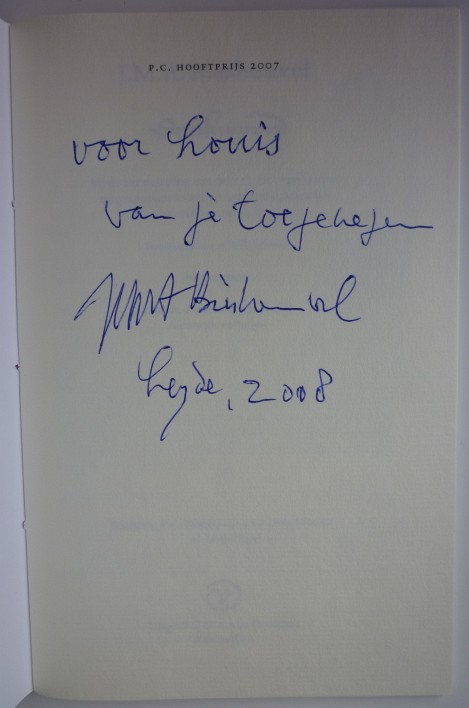 P.C. HOOFTPRIJS 2007
voor Louis
van je toegenegen
JMA Biesheuvel
Leyde, 2008